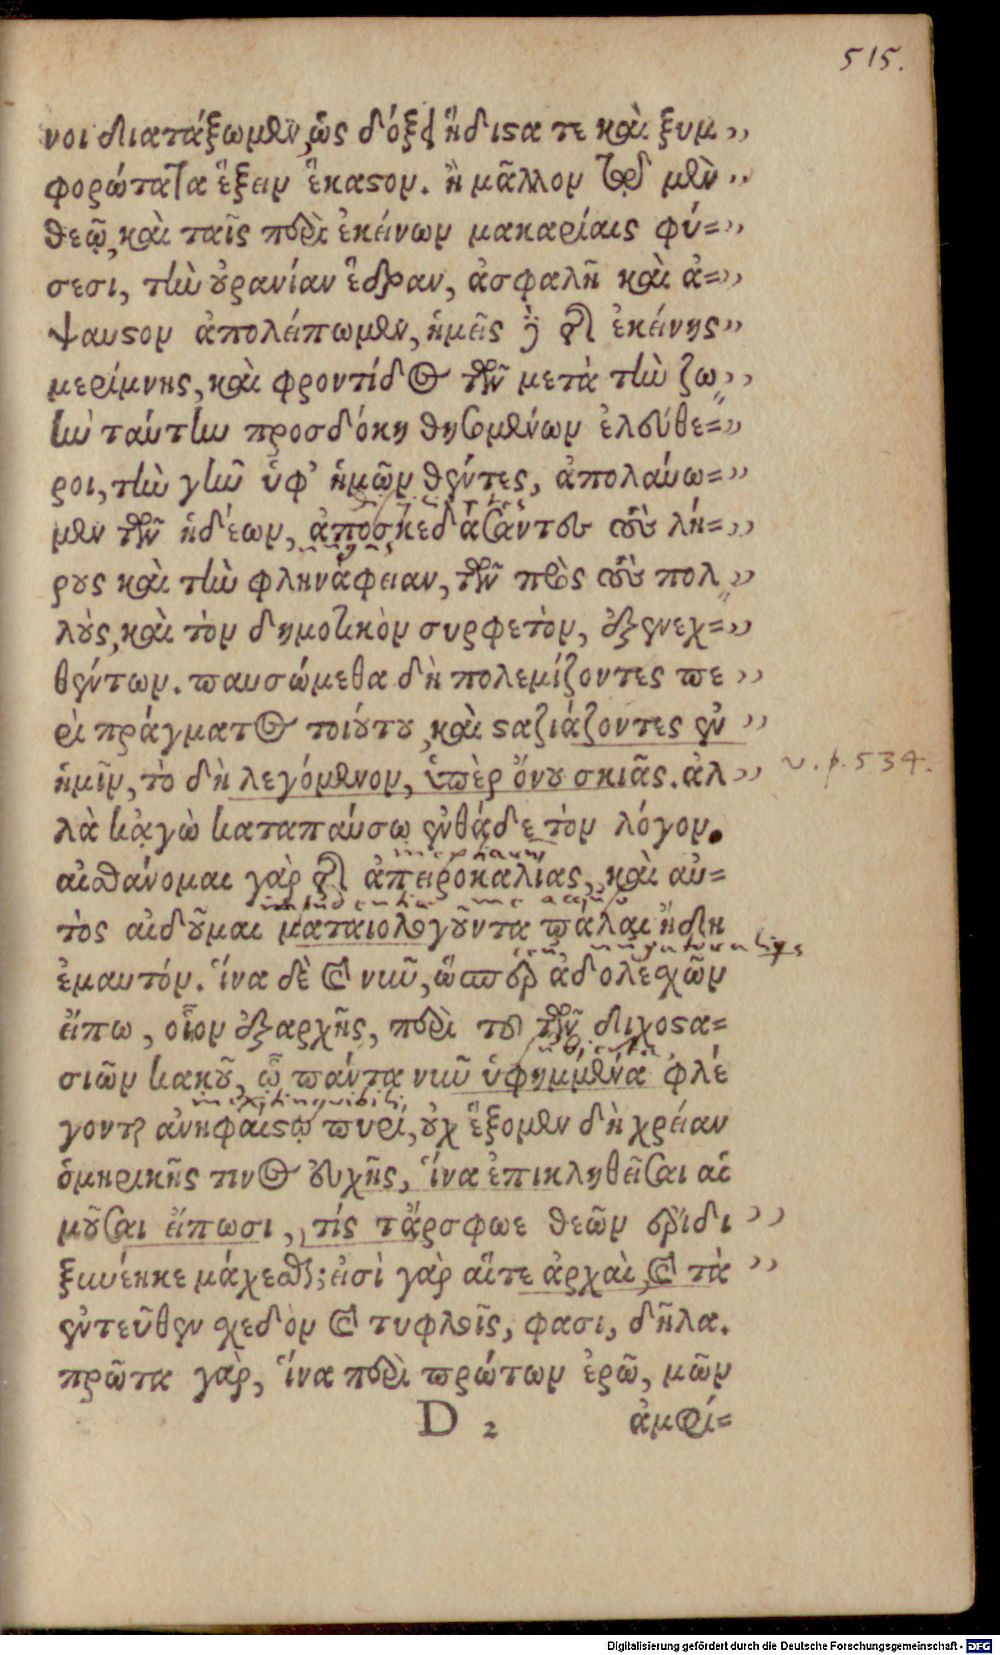 515.
νοι διατάξωμεν, ὡς δόξει ἥδιστα τε καὶ ξυμ„
φορώτατα ἕξειν ἕκαστον. ἢ μᾶλλον τῷ μὲν „
θεῷ, καὶ ταῖς περὶ ἐκείνων μακαρίαις φύ=„
σεσι, τὴν οὐρανίαν ἕδραν, ἀσφαλῆ καὶ ἄ=„
ψαυστον ἀπολείπωμεν, ἡμεῖς δὲ τῆς ἐκείνης „
μερίμνης, καὶ φροντίδος τῶν μετὰ τὴν ζω„
ὴν ταύτην προσδόκη θησομένων ἐλεύθε=„
ροι, τὴν γῆν ὑφ' ἡμῶν θέντες, ἀπολαύω=„
μεν τῶν ἡδέων, ἀποσκεδάσαντες τοὺς λή=„
ρους καὶ τὴν φληνάφειαν, τῶν πρὸς τοὺς πολ„
λοὺς, καὶ τὸν δημοτικὸν συρφετὸν, ἐξενεχ=„
θέντων. παυσώμεθα δὴ πολεμίζοντες πε „
ρὶ πράγματος τοιούτου, καὶ στασιάζοντες ἐν „
ἡμῖν, τὸ δὴ λεγόμενον, ὑπὲρ ὄνου σκιᾶς. ἀλ„ v. p. 534.
λὰ κᾀγὼ καταπαύσω ἐνθάδε τὸν λόγον.
αἰσθάνομαι γὰρ τῆς ἀπειροκαλίας, καὶ αὐ=
τὸς αἰδοῦμαι ματαιολογοῦντα πάλαι ἤδη
ἐμαυτόν. ἵνα δὲ καὶ νῦν, ὥσπερ ἀδολεσχῶν
εἴπω, οἷον ἐξαρχῆς, περὶ του τῶν διχοστα=
σιῶν κακοῦ, ᾧ πάντα νῦν ὑφημμένα φλέ
γονται ἀνηφαίστῳ πυρί, οὐχ ἕξομεν δὴ χρείαν
ὁμηρικῆς τινος εὐχῆς, ἵνα ἐπικληθεῖσαι αἱ
μοῦσαι εἴπωσι, τίς τἄρσφωε θεῶν ἔριδι „
ξυνέηκε μάχεσθαι; εἰσὶ γὰρ αἵτε ἀρχαὶ, καὶ τὰ „
ἐντεῦθεν σχεδὸν καὶ τυφλοῖς, φασι, δῆλα.
πρῶτα γὰρ, ἵνα περὶ πρώτων ἐρῶ, μῶν
D 2 ἀμφί=
Digitalisierung gefördert durch die Deutsche Forschungsgemeinschaft - DFG